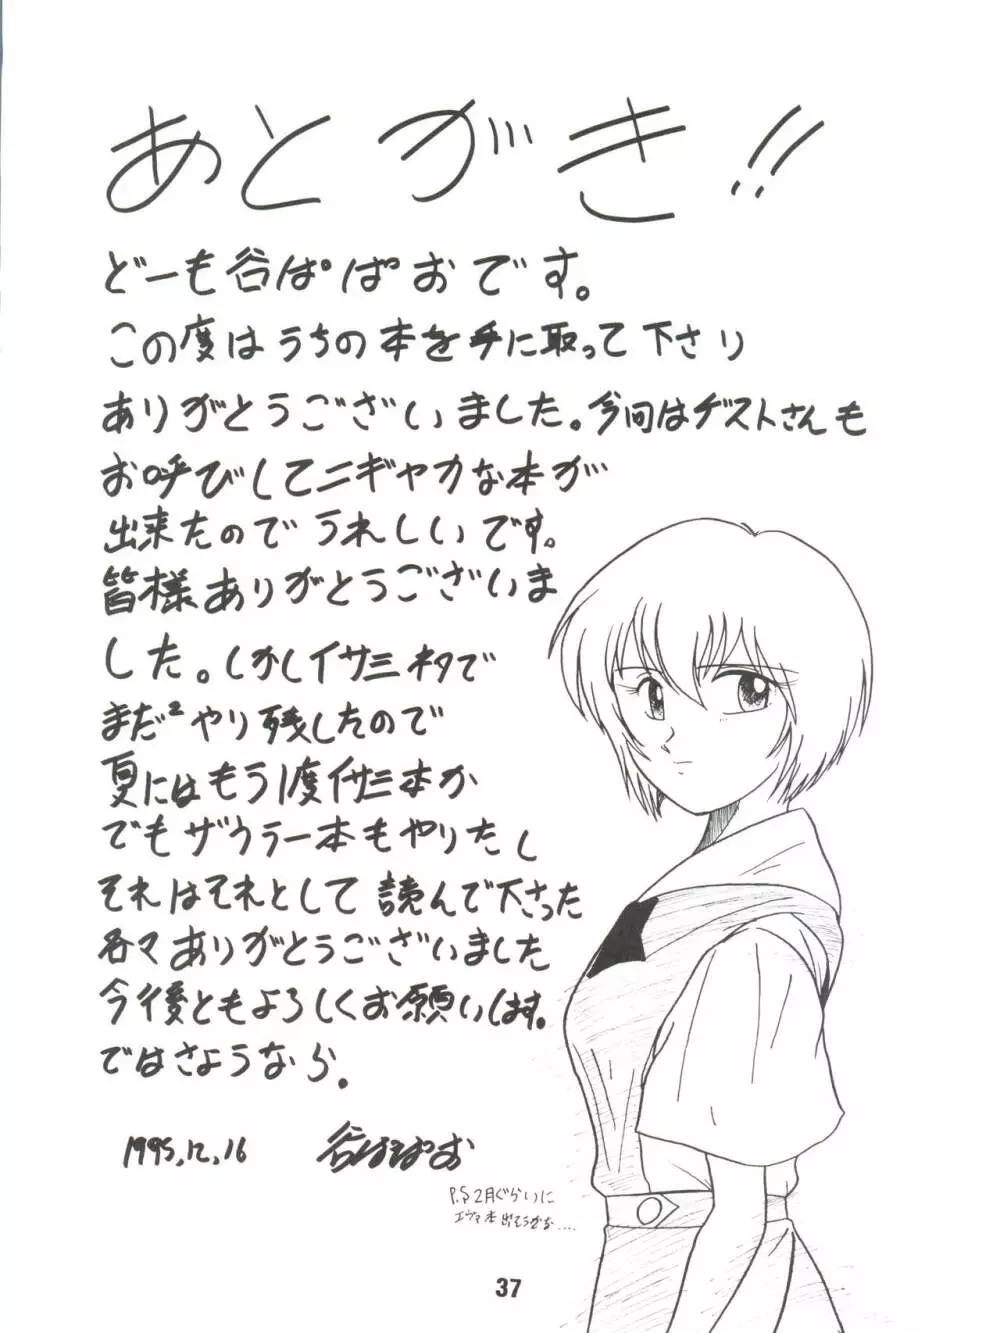 あとがき!!
どーも谷ぱぱおです。
この度はうちの本を手に取って下さり
ありがとうございました。今回はゲストさんも
お呼びしてニギヤカな本が
出来たのでうれしいです。
皆様ありがとうございま
した。しかしイサミネタで
まだ²やり残したので
夏にはもう1度イサミ本か
でもザウラー本もやりたし
それはそれとして読んで下さった
各々ありがとうございました
今後ともよろしくお願いします。
ではさようなら.
1995,12,16
谷ぱぱお
P.S 2月ぐらいに
エヴァ本出そうかな....
37